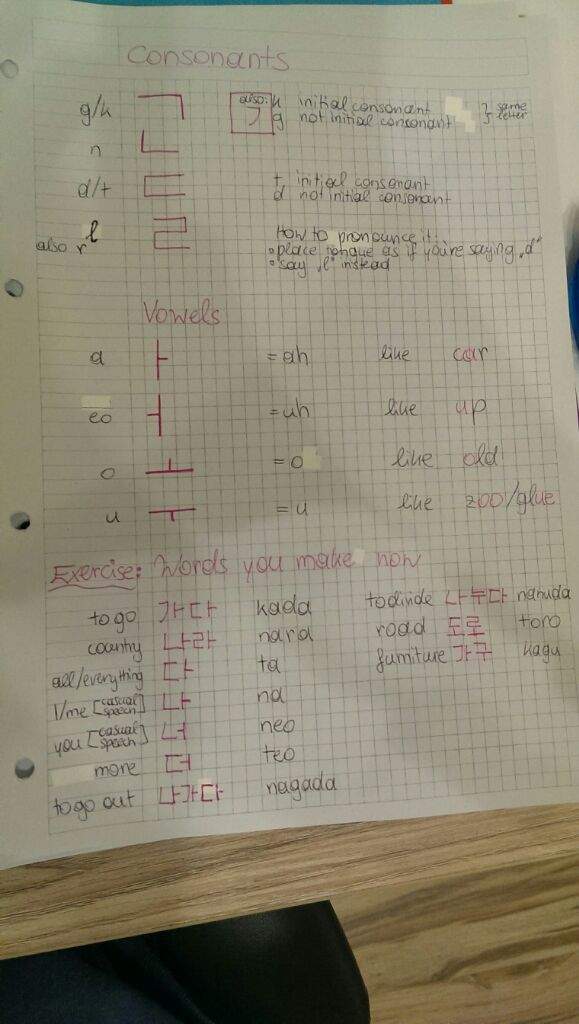 Consonants
g/k ㄱ also: ㄱ k initial consonant } same
g not initial consonant letter
n ㄴ
d/t ㄷ t initial consonant
d not initial consonant
l ㄹ How to pronounce it:
also r • place tongue as if you're saying „d"
• say „l" instead
Vowels
a ㅏ = ah like car
eo ㅓ = uh like up
o ㅗ = o like old
u ㅜ = u like zoo/glue
Exercise: Words you make now
to go 가다 kada to divide 나누다 nanuda
country 나라 nara road 도로 toro
all/everything 다 ta furniture 가구 kagu
I/me [casual speech] 나 na
you [casual speech] 너 neo
more 더 teo
to go out 나가다 nagada